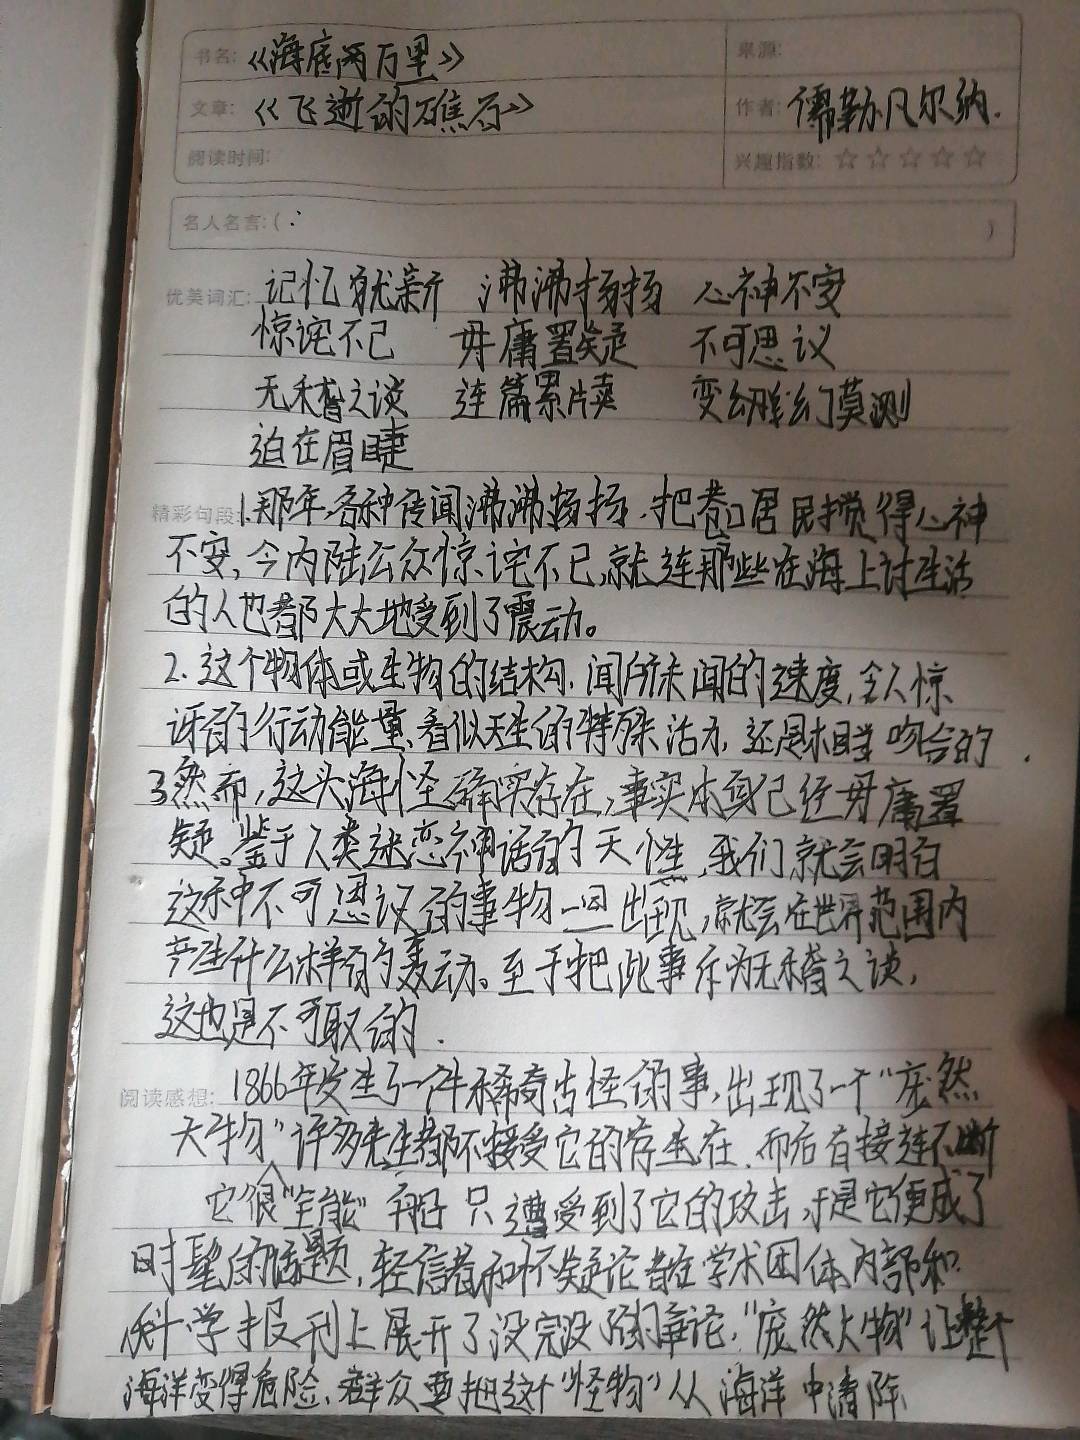 书名:《海底两万里》 来源:
文章:《飞逝的礁石》 作者:儒勒·凡尔纳.
阅读时间: 兴趣指数:☆☆☆☆☆
名人名言:( )
优美词汇: 记忆犹新 沸沸扬扬 心神不安
惊诧不已 毋庸置疑 不可思议
无稽之谈 连篇累牍 变幻莫测
迫在眉睫
精彩句段: 1.那年,各种传闻沸沸扬扬,把港口居民搅得心神
不安,令内陆公众惊诧不已,就连那些在海上讨生活
的人也都大大地受到了震动。
2.这个物体或生物的结构,闻所未闻的速度,令人惊
讶的行动能量,看似天生的特殊活力,还是相当吻合的.
3然而,这头海怪确实存在,事实本身已经毋庸置
疑。鉴于人类迷恋神话的天性,我们就会明白
这种不可思议的事物一旦出现,就会在世界范围内
产生什么样的轰动。至于把此事斥为无稽之谈,
这也是不可取的.
阅读感想: 1866年发生了一件稀奇古怪的事,出现了一个“庞然
大物”许多先生都不接受它的存在,而后有接连不断
它很“全能” 船只遭受到了它的攻击,于是它便成了
时髦的话题,轻信者和怀疑论者在学术团体内部和
科学报刊上展开了没完没了的争论,“庞然大物”让整个
海洋变得危险,群众要把这个“怪物”从海洋中清除,